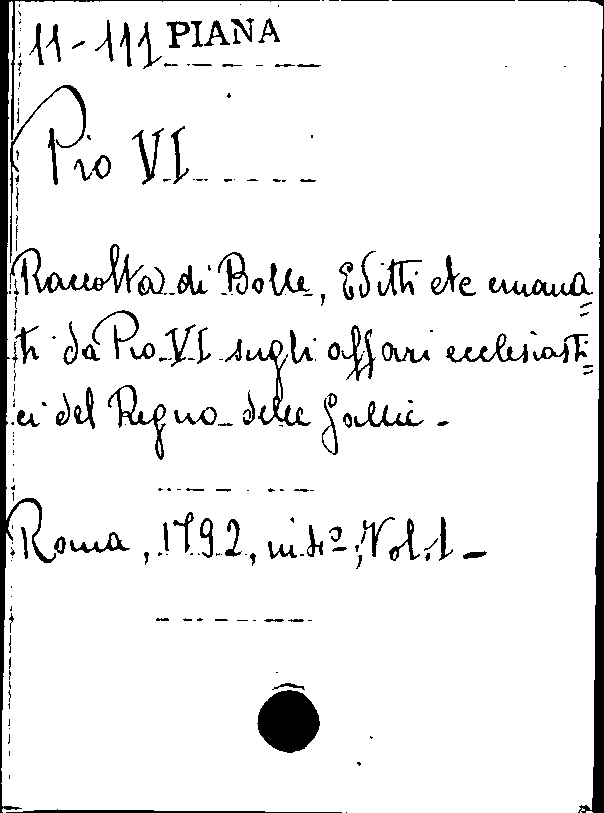 11-111 PIANA
Pio VI
Raccolta di Bolle, Editti etc emana=
ti da Pio VI sugli affari ecclesiasti=
ci del Regno delle Gallie -
Roma, 1792, in 4º, Vol. 1 -